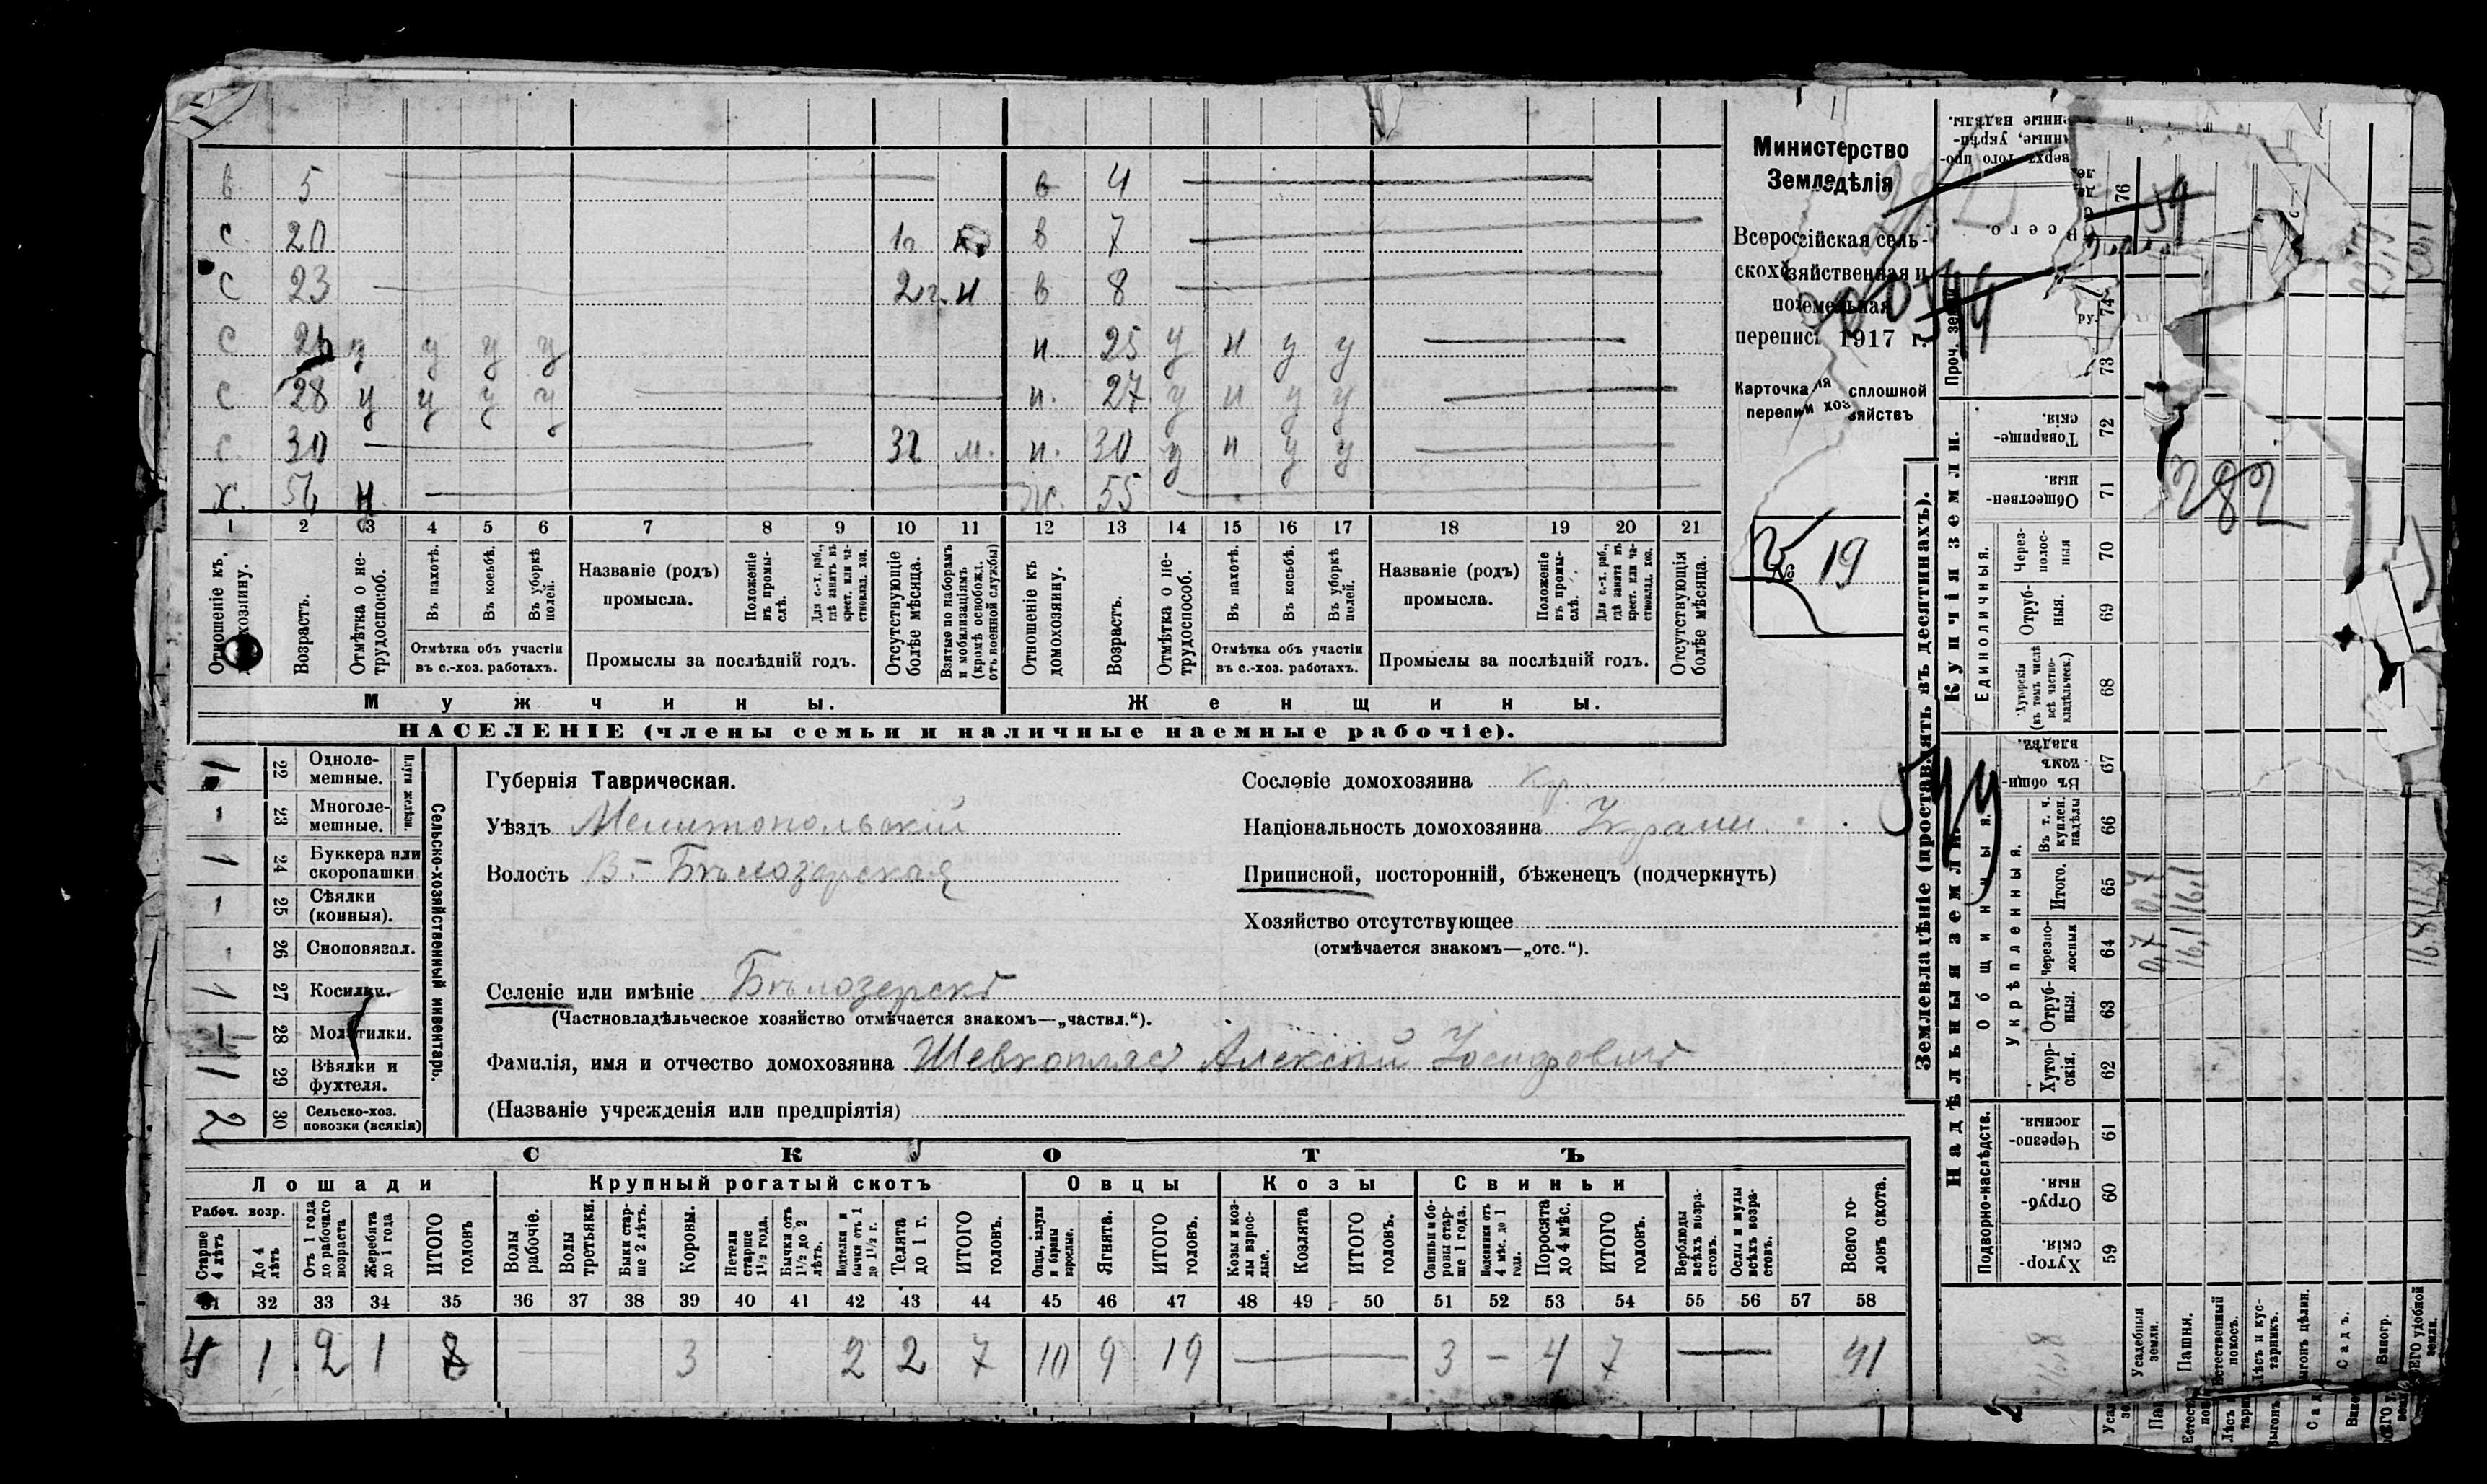 в 5 в 4
с. 20 1г. в 7
с 23 2г. н в 8
с 26 у у у у н. 25 у н у у
с 28 у у у у н. 27 у н у у
с. 30 32 м. н. 30 у н у у
х. 56 н. ж. 55
1 2 3 4 5 6 7 8 9 10 11 12 13 14 15 16 17 18 19 20 21
Отношеніе къ домохозяину.
Возрастъ.
Отмѣтка о нетрудоспособ.
Въ пахотѣ.
Въ косьбѣ.
Въ уборкѣ полей.
Отмѣтка объ участіи
въ с.-хоз. работахъ.
Названіе (родъ)
промысла.
Положеніе въ промыслѣ.
Для с.-х. раб., гдѣ занятъ въ крест. или частновлад. хоз.
Промыслы за послѣдній годъ.
Отсутствующіе болѣе мѣсяца.
Взятые по наборамъ и мобилизаціямъ (кромѣ освобожд. отъ военной службы)
Отношеніе къ домохозяину.
Возрастъ.
Отмѣтка о нетрудоспособ.
Въ пахотѣ.
Въ косьбѣ.
Въ уборкѣ полей.
Отмѣтка объ участіи
въ с.-хоз. работахъ.
Названіе (родъ)
промысла.
Положеніе въ промыслѣ.
Для с.-х. раб., гдѣ занята въ крест. или частновлад. хоз.
Промыслы за послѣдній годъ.
Отсутствующія болѣе мѣсяца.
Мужчины. Женщины.
НАСЕЛЕНІЕ (члены семьи и наличные наемные рабочіе).
Министерство
Земледѣлія
Всероссійская сель-
скохозяйственная и
поземельная
перепись 1917 г.
Карточка для сплошной
переписи хозяйствъ
№ 19
Сельско-хозяйственный инвентарь.
Плуги желѣзн.
1 22 Однолемешные.
- 23 Многолемешные.
1 24 Буккера или скоропашки
- 25 Сѣялки (конныя).
- 26 Сноповязал.
1 27 Косилки.
28 Молотилки.
1 29 Вѣялки и фухтеля.
2 30 Сельско-хоз. повозки (всякія)
Губернія Таврическая.
Уѣздъ Мелитопольскій
Волость В.-Бѣлозерская
Селеніе или имѣніе Бѣлозерскъ
(Частновладѣльческое хозяйство отмѣчается знакомъ—„частвл.“).
Фамилія, имя и отчество домохозяина Шевкопляс Алексѣй Іосифовичъ
(Названіе учрежденія или предпріятія)
Сословіе домохозяина Кр.
Національность домохозяина Украин.
Приписной, посторонній, бѣженецъ (подчеркнуть)
Хозяйство отсутствующее
(отмѣчается знакомъ—„отс.“).
СКОТЪ
Лошади Крупный рогатый скотъ Овцы Козы Свиньи
Рабоч. возр.
Старше 4 лѣтъ
До 4 лѣтъ
Отъ 1 года до рабочаго возраста
Жеребята до 1 года
ИТОГО головъ
Волы рабочіе.
Волы третьяки.
Быки старше 2 лѣтъ.
Коровы.
Нетели старше 1½ года.
Бычки отъ 1½ до 2 лѣтъ.
Подтелки и бычки отъ 1 до 1½ г.
Телята до 1 г.
ИТОГО головъ.
Овцы, валухи и бараны взрослые.
Ягнята.
ИТОГО головъ.
Козы и козлы взрослые.
Козлята
ИТОГО головъ.
Свиньи и боровы старше 1 года.
Подсвинки отъ 4 мѣс. до 1 года.
Поросята до 4 мѣс.
ИТОГО головъ.
Верблюды всѣхъ возрастовъ.
Ослы и мулы всѣхъ возрастовъ.
Всего головъ скота.
31 32 33 34 35 36 37 38 39 40 41 42 43 44 45 46 47 48 49 50 51 52 53 54 55 56 57 58
4 1 2 1 8 3 2 2 7 10 9 19 3 - 4 7 41
Землевладѣніе (проставлять въ десятинахъ).
Проч. земли
Всего.
76
74
73
Купчія земли.
Товарищескія. 72
Общественныя. 71
Единоличныя.
Черезполосныя 70
Отрубныя. 69
Хуторскія (въ томъ числѣ всѣ частновладѣльческ.) 68
282
Надѣльныя земли.
Общинныя.
Въ общинномъ владѣн. 67
Укрѣпленныя.
Въ т. ч. куплен. надѣлы 66
Итого. 65
Черезполосныя 64
Отрубныя. 63
Хуторскія. 62
Подворно-наслѣдств.
Черезполосныя. 61
Отрубныя. 60
Хуторскія. 59
0,7 0,7
16,1 16,1
16,8 16,8
16,8
Усадебныя земли.
Пашня.
Естественный покосъ.
Лѣсъ и кустарникъ.
Выгонъ цѣлин.
Садъ.
Виногр.
ВСЕГО удобной земли.